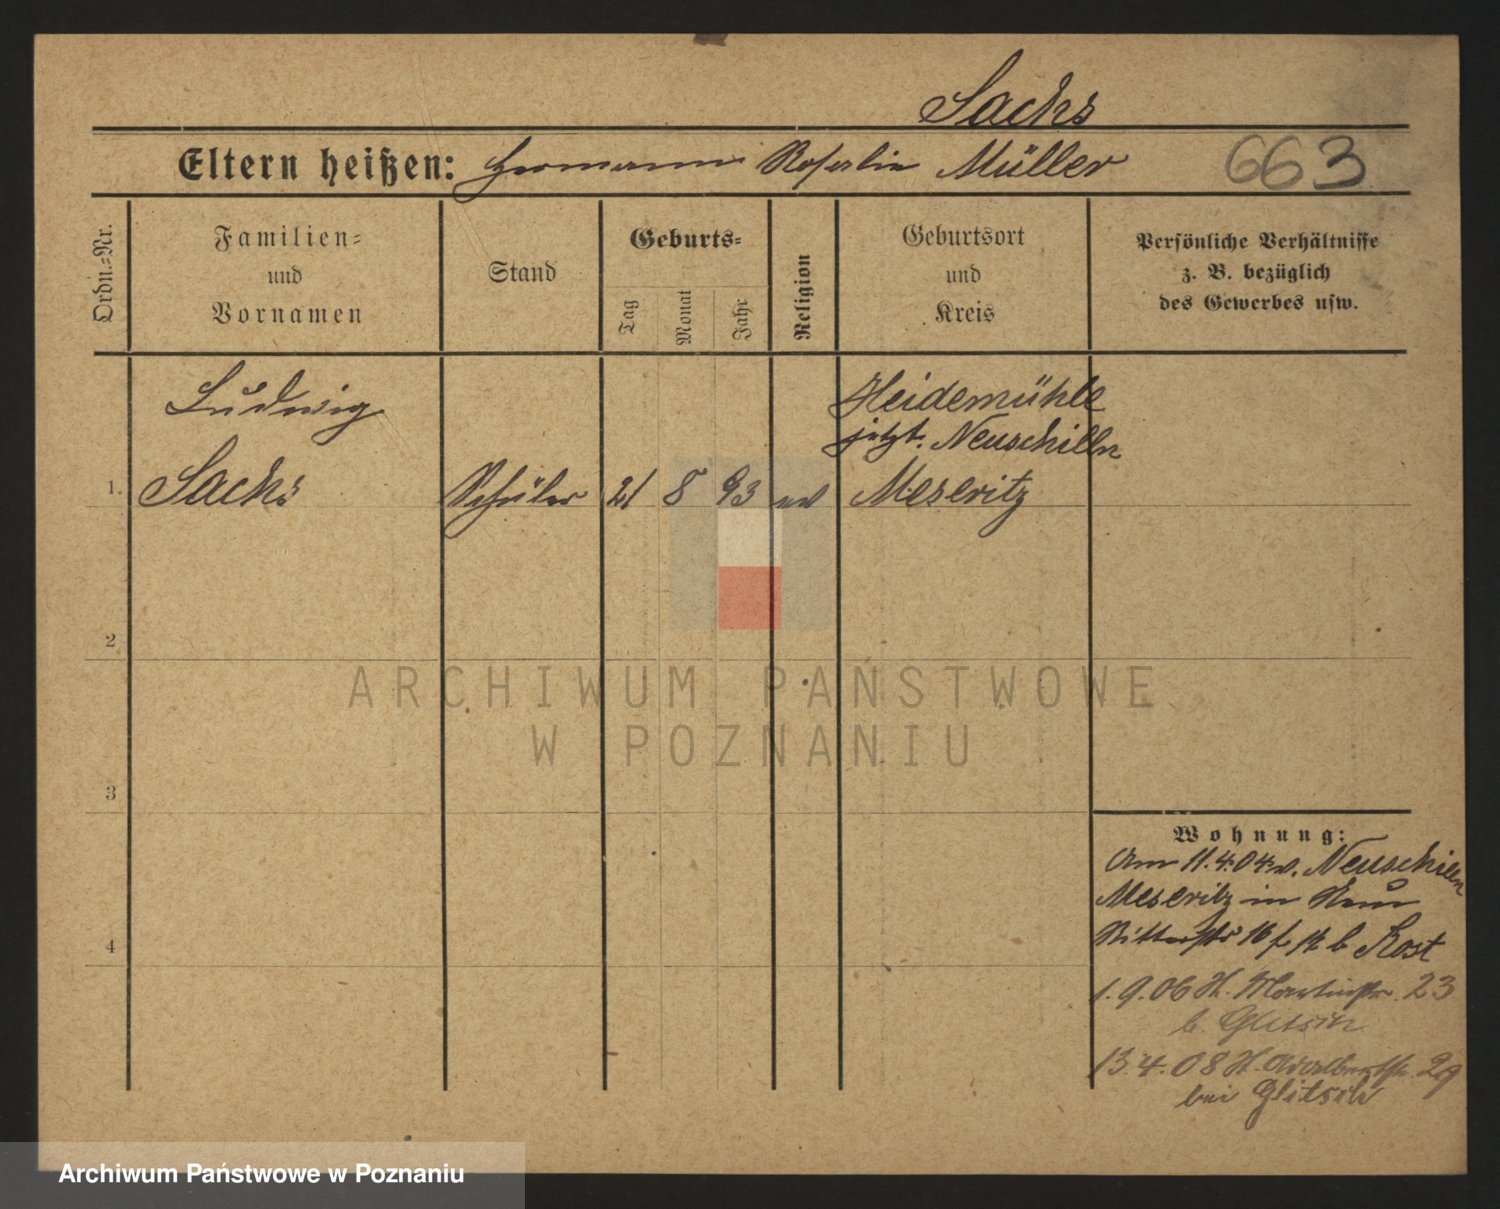 Sachs
Eltern heißen: Hermann Rosalie Müller 663
Ordn.=Nr.
Familien=
und
Vornamen
Stand
Geburts=
Tag
Monat
Jahr
Religion
Geburtsort
und
Kreis
Persönliche Verhältnisse
z. B. bezüglich
des Gewerbes usw.
Ludwig
Heidemühle
jetzt. Neuschilln
1. Sachs Schüler 21 8 93 Meseritz
2
3
4
Wohnung:
Am 11.4.04 v. Neuschilln
Meseritz in
Ritterstr 16 b Kost
1.9.06 H. Martinstr. 23
b. Glitsch
13.4.08 H. Adalbertstr. 29
bei Glitsch
ARCHIWUM PAŃSTWOWE
W POZNANIU
Archiwum Państwowe w Poznaniu